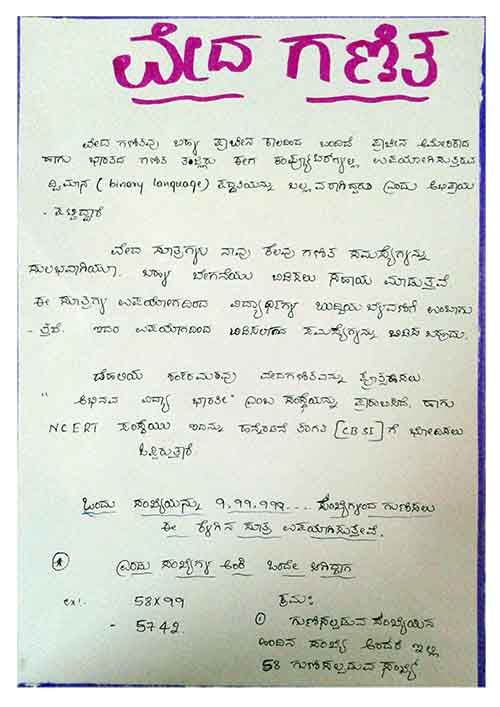 ವೇದ ಗಣಿತ
ವೇದ ಗಣಿತವು ಬಹ್ಯ ಪ್ರಾಚೀನ ಕಾಲದಿಂದ ಬಂದಿದೆ ಪ್ರಾಚೀನ ಅಮೇರಿಕಾದ
ಹಾಗು ಭಾರತದ ಗಣಿತ ತಜ್ಞರು ಈಗ ಕಂಪ್ಯೂಟರ್‌ಗಳಲ್ಲಿ ಉಪಯೋಗಿಸುತ್ತಿರುವ
ದ್ವಿಮಾನ ( binary language) ಪದ್ಧತಿಯನ್ನು ಬಲ್ಲವರಾಗಿದ್ದರು ಎಂದು ಅಭಿಪ್ರಾಯ
- ಪಟ್ಟಿದ್ದಾರೆ
ವೇದ ಸೂತ್ರಗಳು ನಾವು ಕೆಲವು ಗಣಿತ ಸಮಸ್ಯೆಗಳನ್ನು
ಸುಲಭವಾಗಿಯೂ, ಬಹ್ಯ ಬೇಗನೆಯು ಬಿಡಿಸಲು ಸಹಾಯ ಮಾಡುತ್ತವೆ
ಈ ಸೂತ್ರಗಳ ಉಪಯೋಗದಿಂದ ವಿದ್ಯಾರ್ಥಿಗಳ ಬುದ್ಧಿಯ ಬೆಳವಣಿಗೆ ಉಂಟಾಗು
- ತ್ತದೆ. ಇದರ ಉಪಯೋಗದಿಂದ ಸಮಸ್ಯೆಗಳನ್ನು ಬಿಡಿಸ ಬಹುದು.
ದೆಹಲಿಯ ಶಂಕರಮಠವು ವೇದಗಣಿತವನ್ನು ಪ್ರೋತ್ಸಹಿಸಲು
" ಅಭಿನವ ವಿದ್ಯಾ ಭಾರತೀ" ಎಂಬ ಸಂಸ್ಥೆಯನ್ನು ಪ್ರಾರಂಭಿಸಿದೆ. ಹಾಗು
NCERT ಸಂಸ್ಥೆಯು ಇದನ್ನು ಹನ್ನೆರಡನೆ ತರಗತಿ [CBSE] ಗೆ ಬೋಧಿಸಲು
ಒಪ್ಪಿರುತ್ತಾರೆ.
ಒಂದು ಸಂಖ್ಯೆಯನ್ನು 9, 99, 999.... ಸಂಖ್ಯೆಗಳಿಂದ ಗುಣಿಸಲು
ಈ ಕೆಳಗಿನ ಸೂತ್ರ ಉಪಯೋಗಿಸುತ್ತೇವೆ.
ಎರಡು ಸಂಖ್ಯೆಗಳ ಅಂಕಿ ಒಂದೇ ಆಗಿದ್ದಾಗ
ex:. 58×99 ಕ್ರಮ:
- 5742. ① ಗುಣಿಸಲ್ಪಡುವ ಸಂಖ್ಯೆಯಿನ
ಹಿಂದಿನ ಸಂಖ್ಯೆ ಅಂದರೆ ಇಲ್ಲಿ
58 ಗುಣಿಸಲ್ಪಡುವ ಸಂಖ್ಯೆ